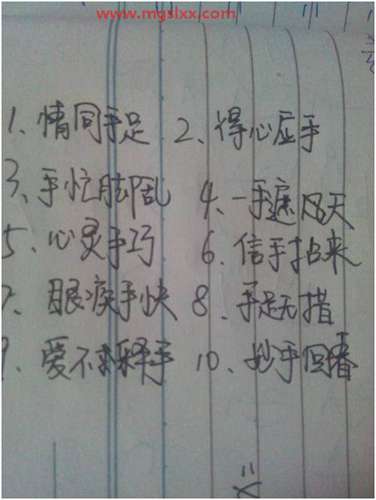 www.mgslxx.com
1、情同手足 2、得心应手
3、手忙脚乱 4、一手遮天
5、心灵手巧 6、信手拈来
7、眼疾手快 8、手足无措
9、爱不释手 10、妙手回春